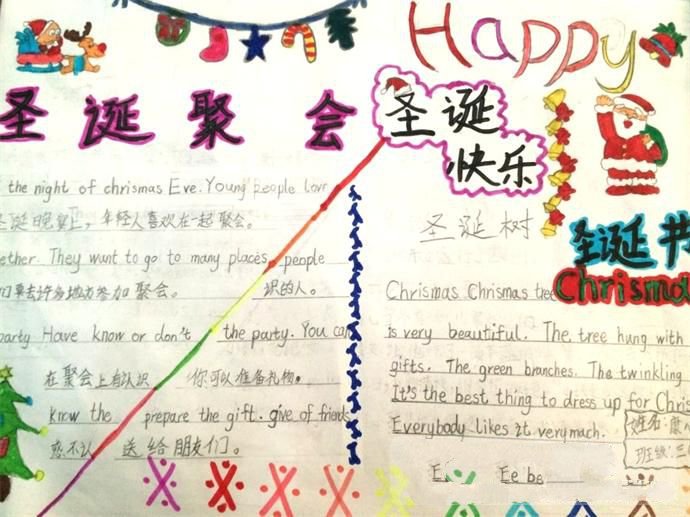 Happy
圣诞聚会
圣诞
快乐
the night of chrismas Eve. Young people love
圣诞晚宴上，年轻人喜欢在一起聚会。
ether. They want to go to many places people
们要去许多地方参加聚会。 识的人。
party Have know or don't the party. You can
在聚会上有认识 你可以准备礼物。
know the prepare the gift. give of friends
或不认 送给朋友们。
圣诞树
圣诞节
Chrisma
Chrismas Chrismas tree
is very beautiful. The tree hung with
gifts. The green branches. The twinkling
It's the best thing to dress up for Chris
Everybody likes it very mach.
姓名:康
班级:三